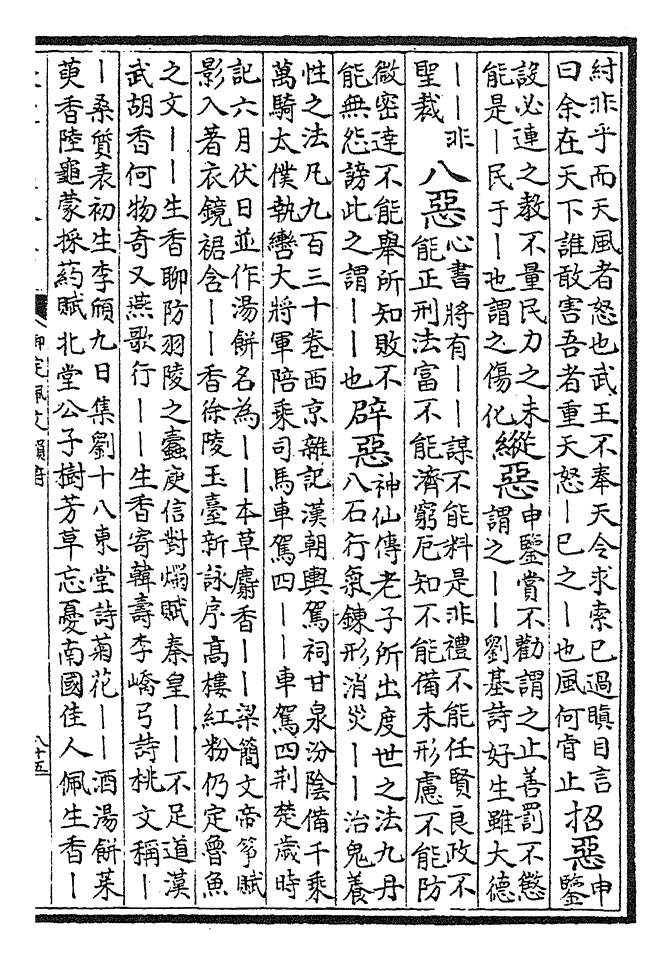 紂非乎而天風者怒也武王不奉天令求索已過瞋目言
曰余在天下誰敢害吾者重天怒｜已之｜也風何肯止
招惡
申
鑒
設必違之教不量民力之未
能是｜民于｜也謂之傷化
縱惡
申鑒賞不勸謂之止善罰不懲
謂之｜｜劉基詩好生雖大德
｜｜非
聖裁
八惡
心書將有｜｜謀不能料是非禮不能任賢良政不
能正刑法富不能濟窮厄知不能備未形慮不能防
微密達不能舉所知敗不
能無怨謗此之謂｜｜也
辟惡
神仙傳老子所出度世之法九丹
八石行氣鍊形消災｜｜治鬼養
性之法凡九百三十卷西京雜記漢朝輿駕祠甘泉汾陰備千乘
萬騎太僕執轡大將軍陪乘司馬車駕四｜｜車駕四荆楚歲時
記六月伏日並作湯餅名為｜｜本草麝香｜｜梁簡文帝箏賦
影入著衣鏡裙含｜｜香徐陵玉臺新詠序高樓紅粉仍定魯魚
之文｜｜生香聊防羽陵之蠹庾信對燭賦秦皇｜｜不足道漢
武胡香何物奇又燕歌行｜｜生香寄韓壽李嶠弓詩桃文稱｜
｜桑質表初生李頎九日集劉十八東堂詩菊花｜｜酒湯餅茱
萸香陸龜蒙採葯賦北堂公子樹芳草忘憂南國佳人佩生香｜
御定佩文韻府
八十五